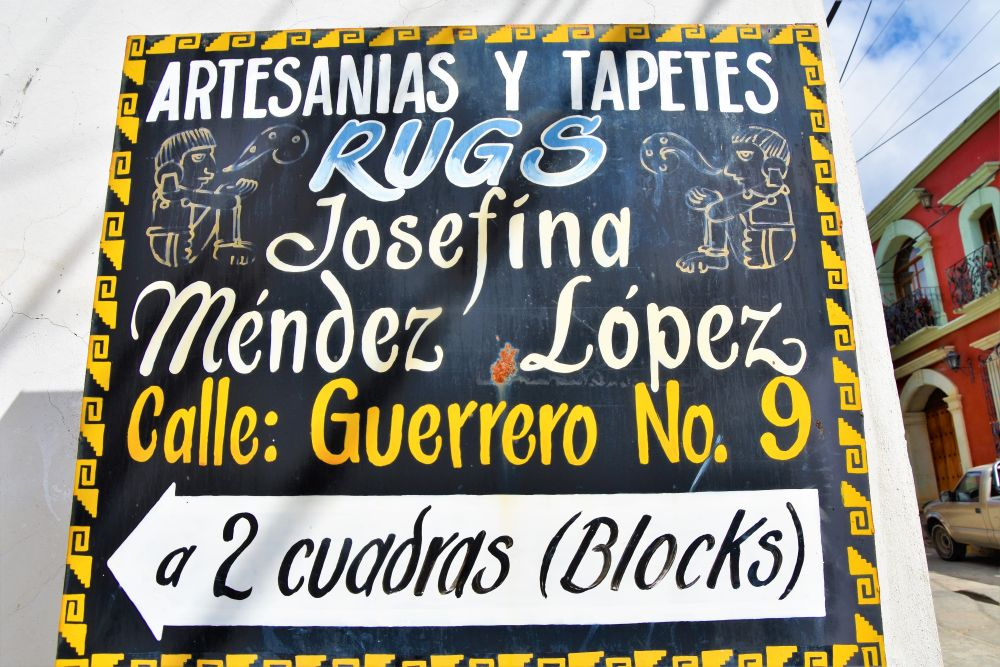 ARTESANIAS Y TAPETES
RUGS
Josefína
Méndez López
Calle: Guerrero No. 9
a 2 cuadras (Blocks)